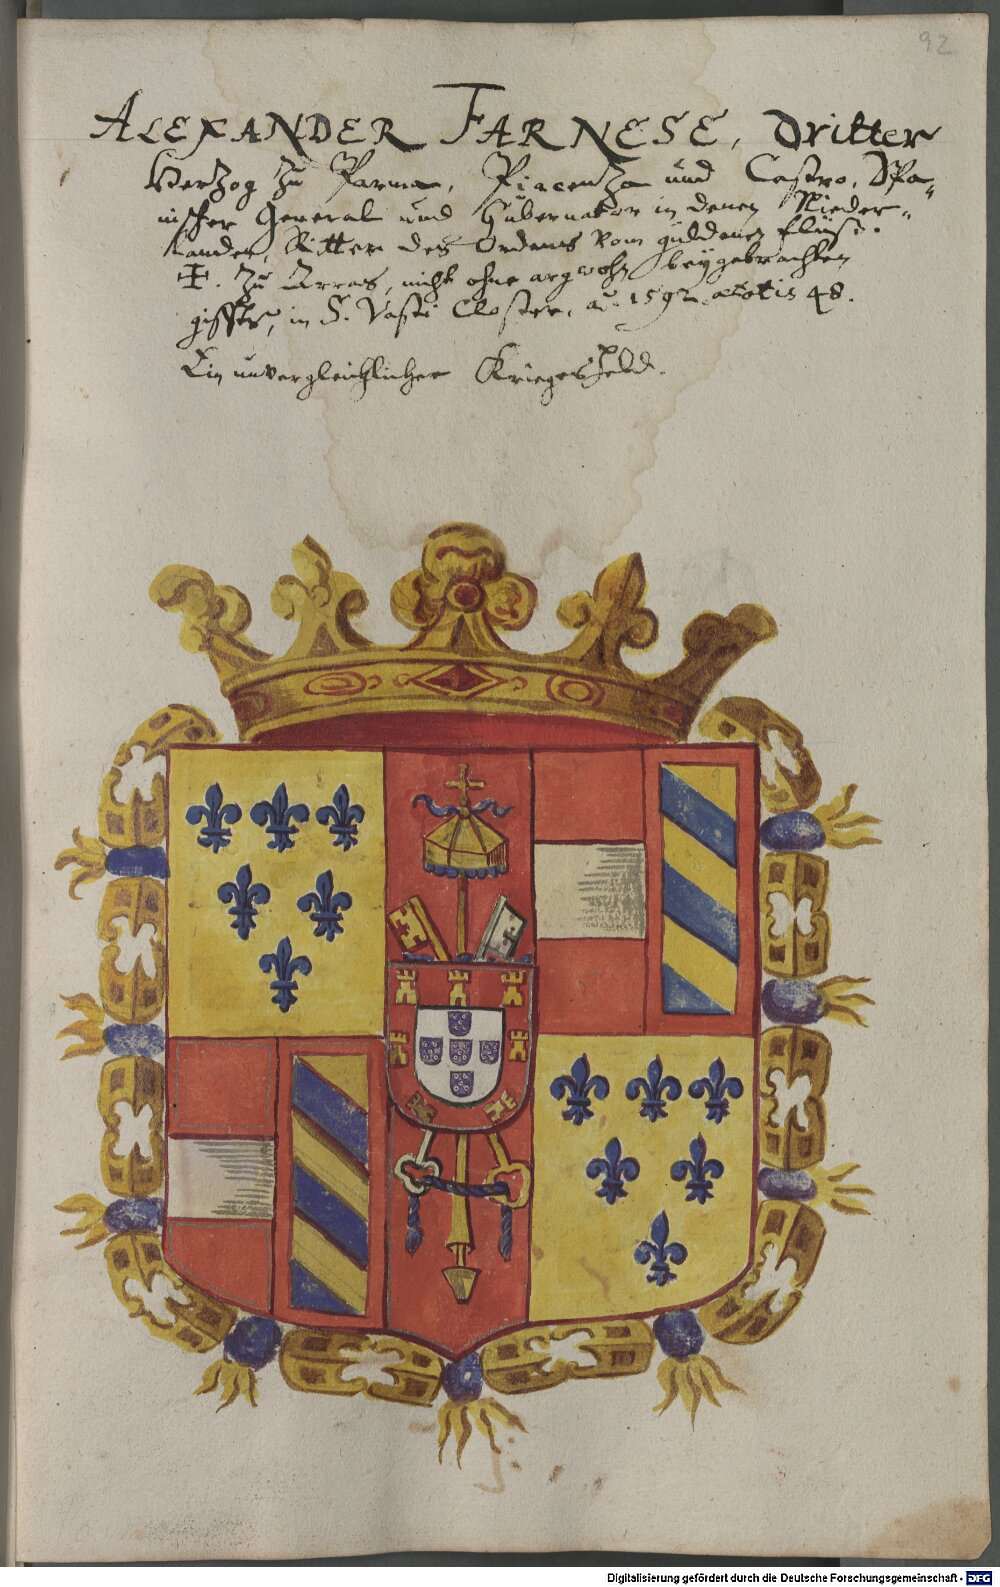 92
ALEXANDER FARNESE, Dritter
Herzog zu Parma, Piacenza und Castro, Spa-
nischer General und Gubernator in denen Nieder-
landen, Ritter des Ordens vom güldenen flüss.
✠. zu Arras, nicht ohne argwohn beygebrachten
giffts, in S. Vasti Closter, aõ. 1592. aetatis 48.
Ein unvergleichlicher Kriegesheld.
Digitalisierung gefördert durch die Deutsche Forschungsgemeinschaft - DFG